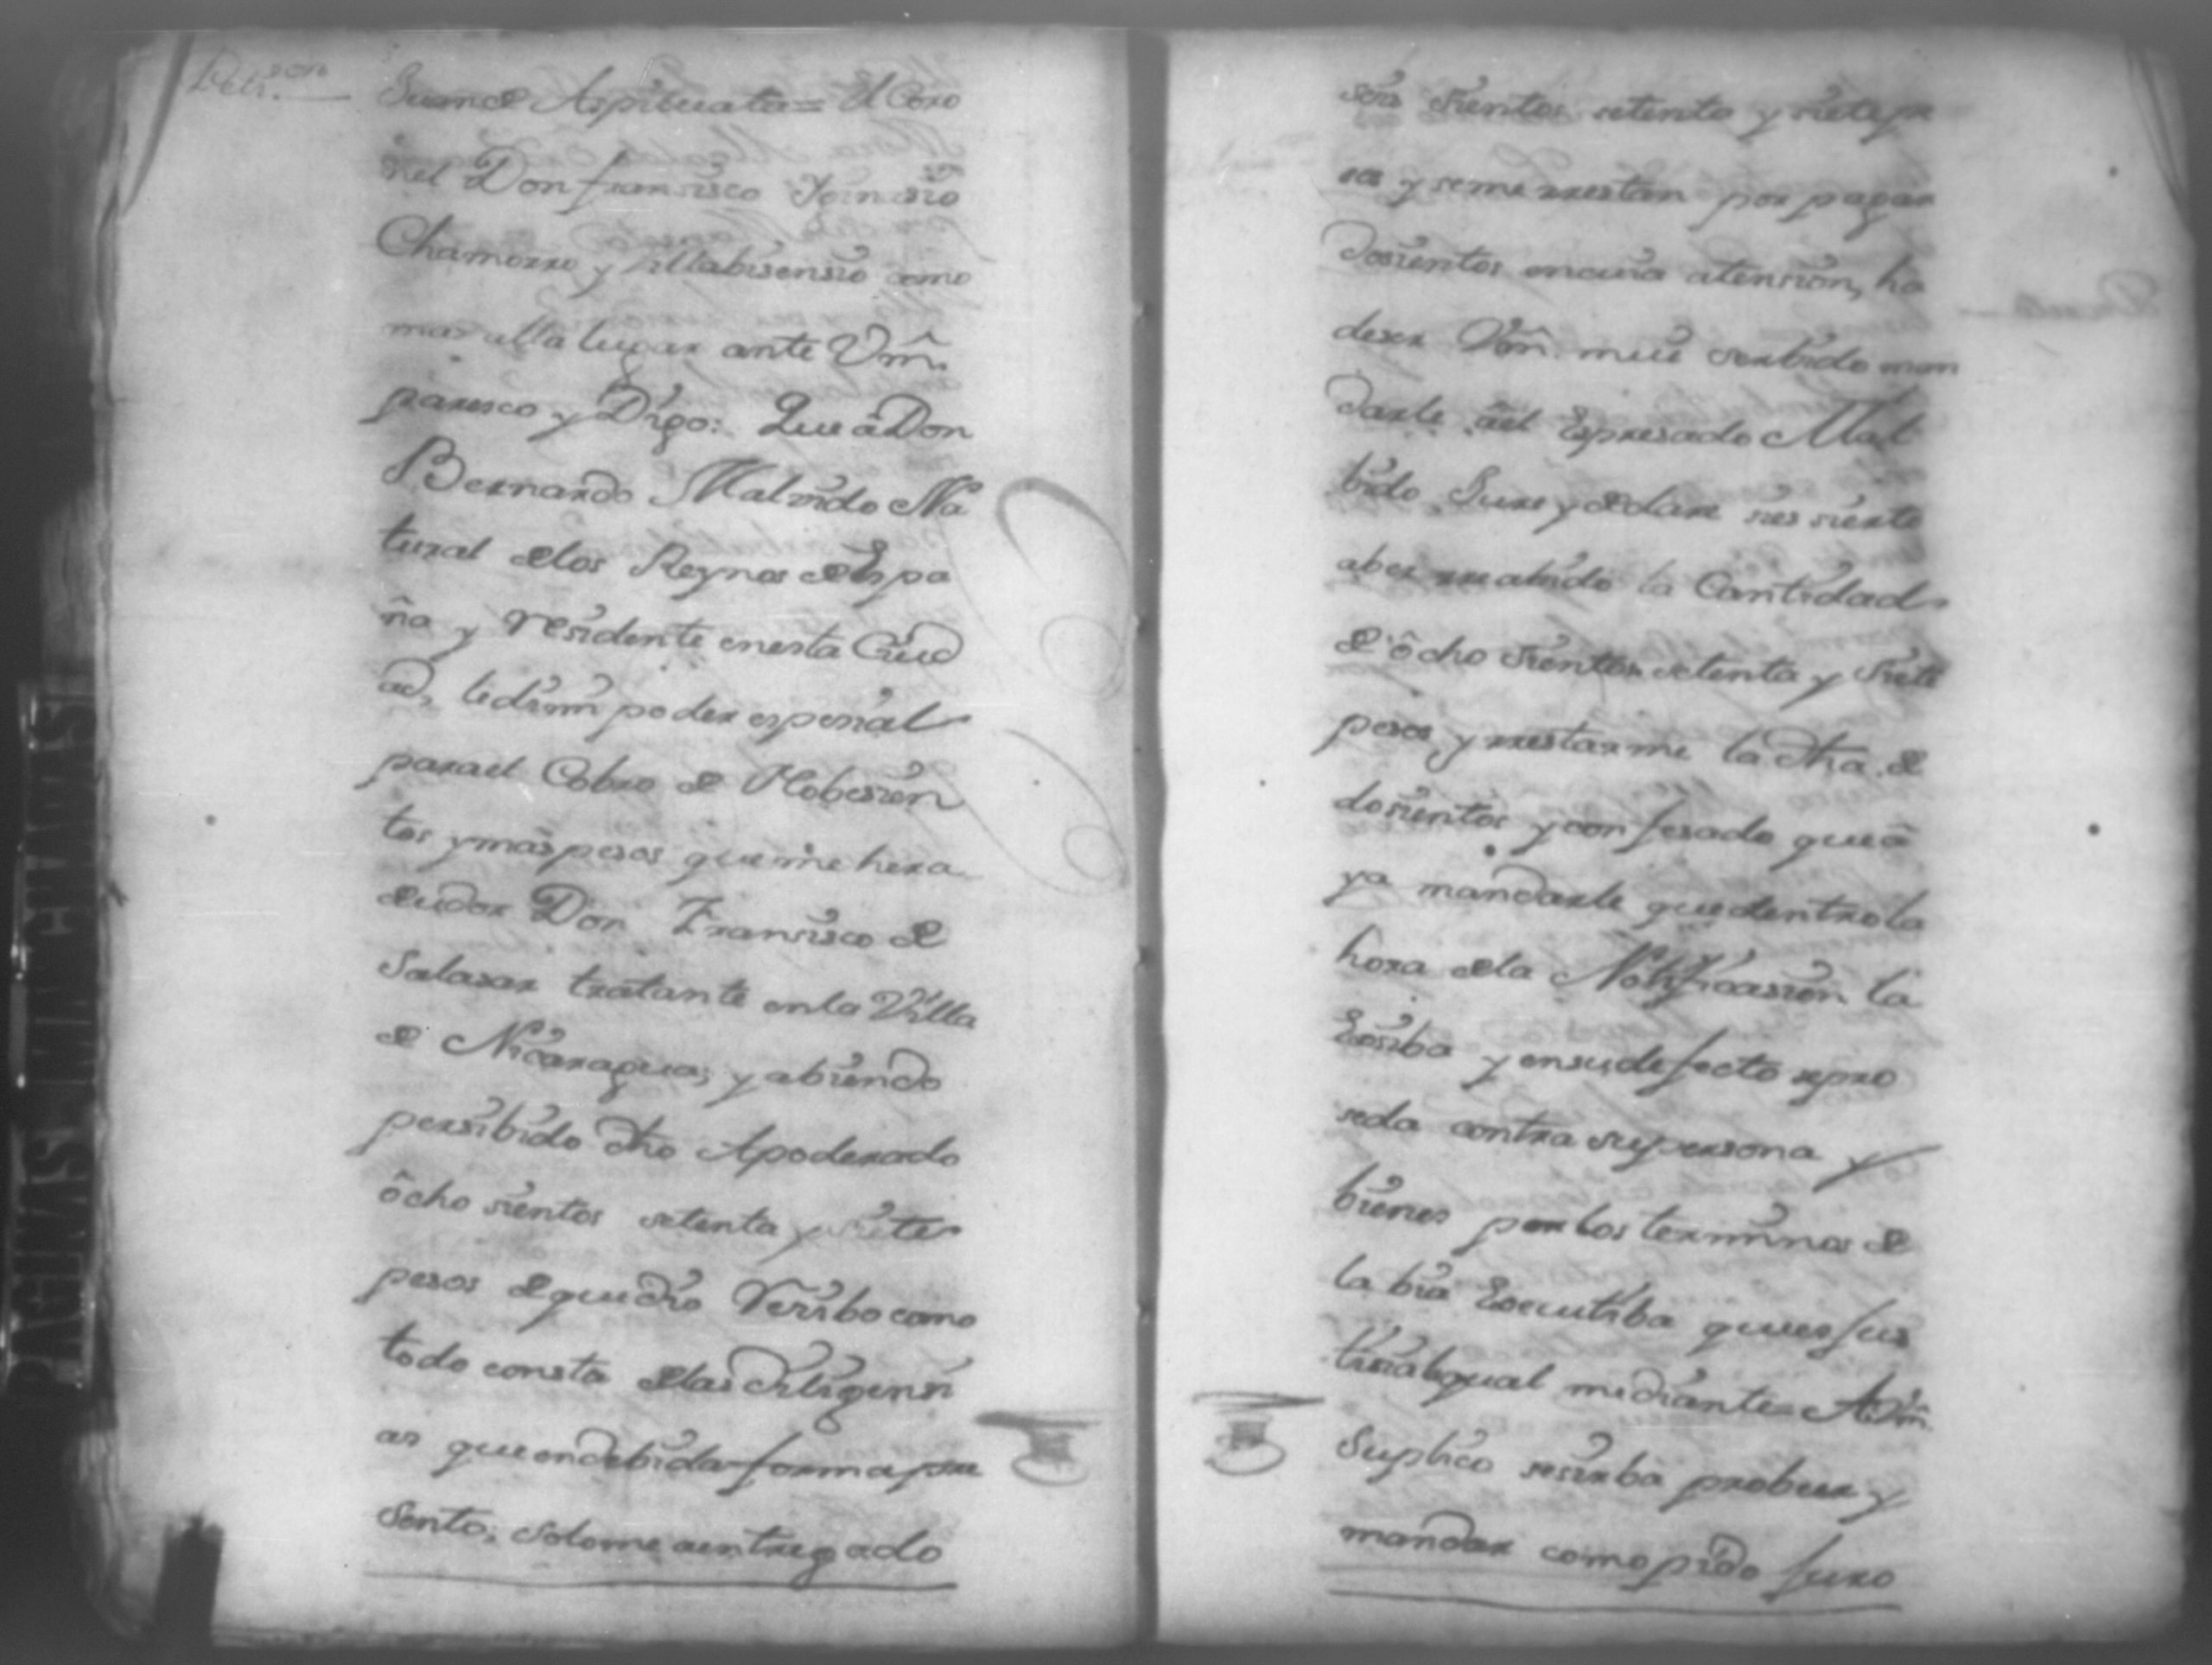 Peti.on
Juan de Aspicueta = El Coro
nel Don fransisco Ygnasio
Chamorro y Villabisensio como
mas alla lugar ante Vm̃.
paresco y Digo: Que â Don
Bernardo Malvido Na
tural delos Reynos de Espa
ña y residente enesta Ciud
ad, ledi mi poder espesial
parael Cobro de Nobesien
tos ymas pesos queme hera
deudor Don Fransisco de
Salasar tratante enla Villa
de Nicaragua; y abiendo
persibido dho Apoderado
ôcho sientos setenta y siete
pesos de que dio Resibo como
todo consta delas diligensi
as que endebida forma pre
sento; solome aentregado
seis sientos setenta y siete pe
sos y seme rrestan por pagar
dosientos encuia atension, ha
deser Vm̃. mui serbido man
darle âel Espresado Mal
bido Jure y declare si es sierto
aber rresabido la Cantidad
de ôcho sientos setenta y siete
pesos, y rrestarme la dha de
dosientos y confesado que â
ya mandarle que dentro la
hora dela Notificasion la
Esiba y ensudefecto sepro
seda contra supersona y
bienes por los terminos de
la bia Executiba que es jus
tisia lo qual mediante = A Vm̃.
Suplico sesirba prober y
mandar como pido juro